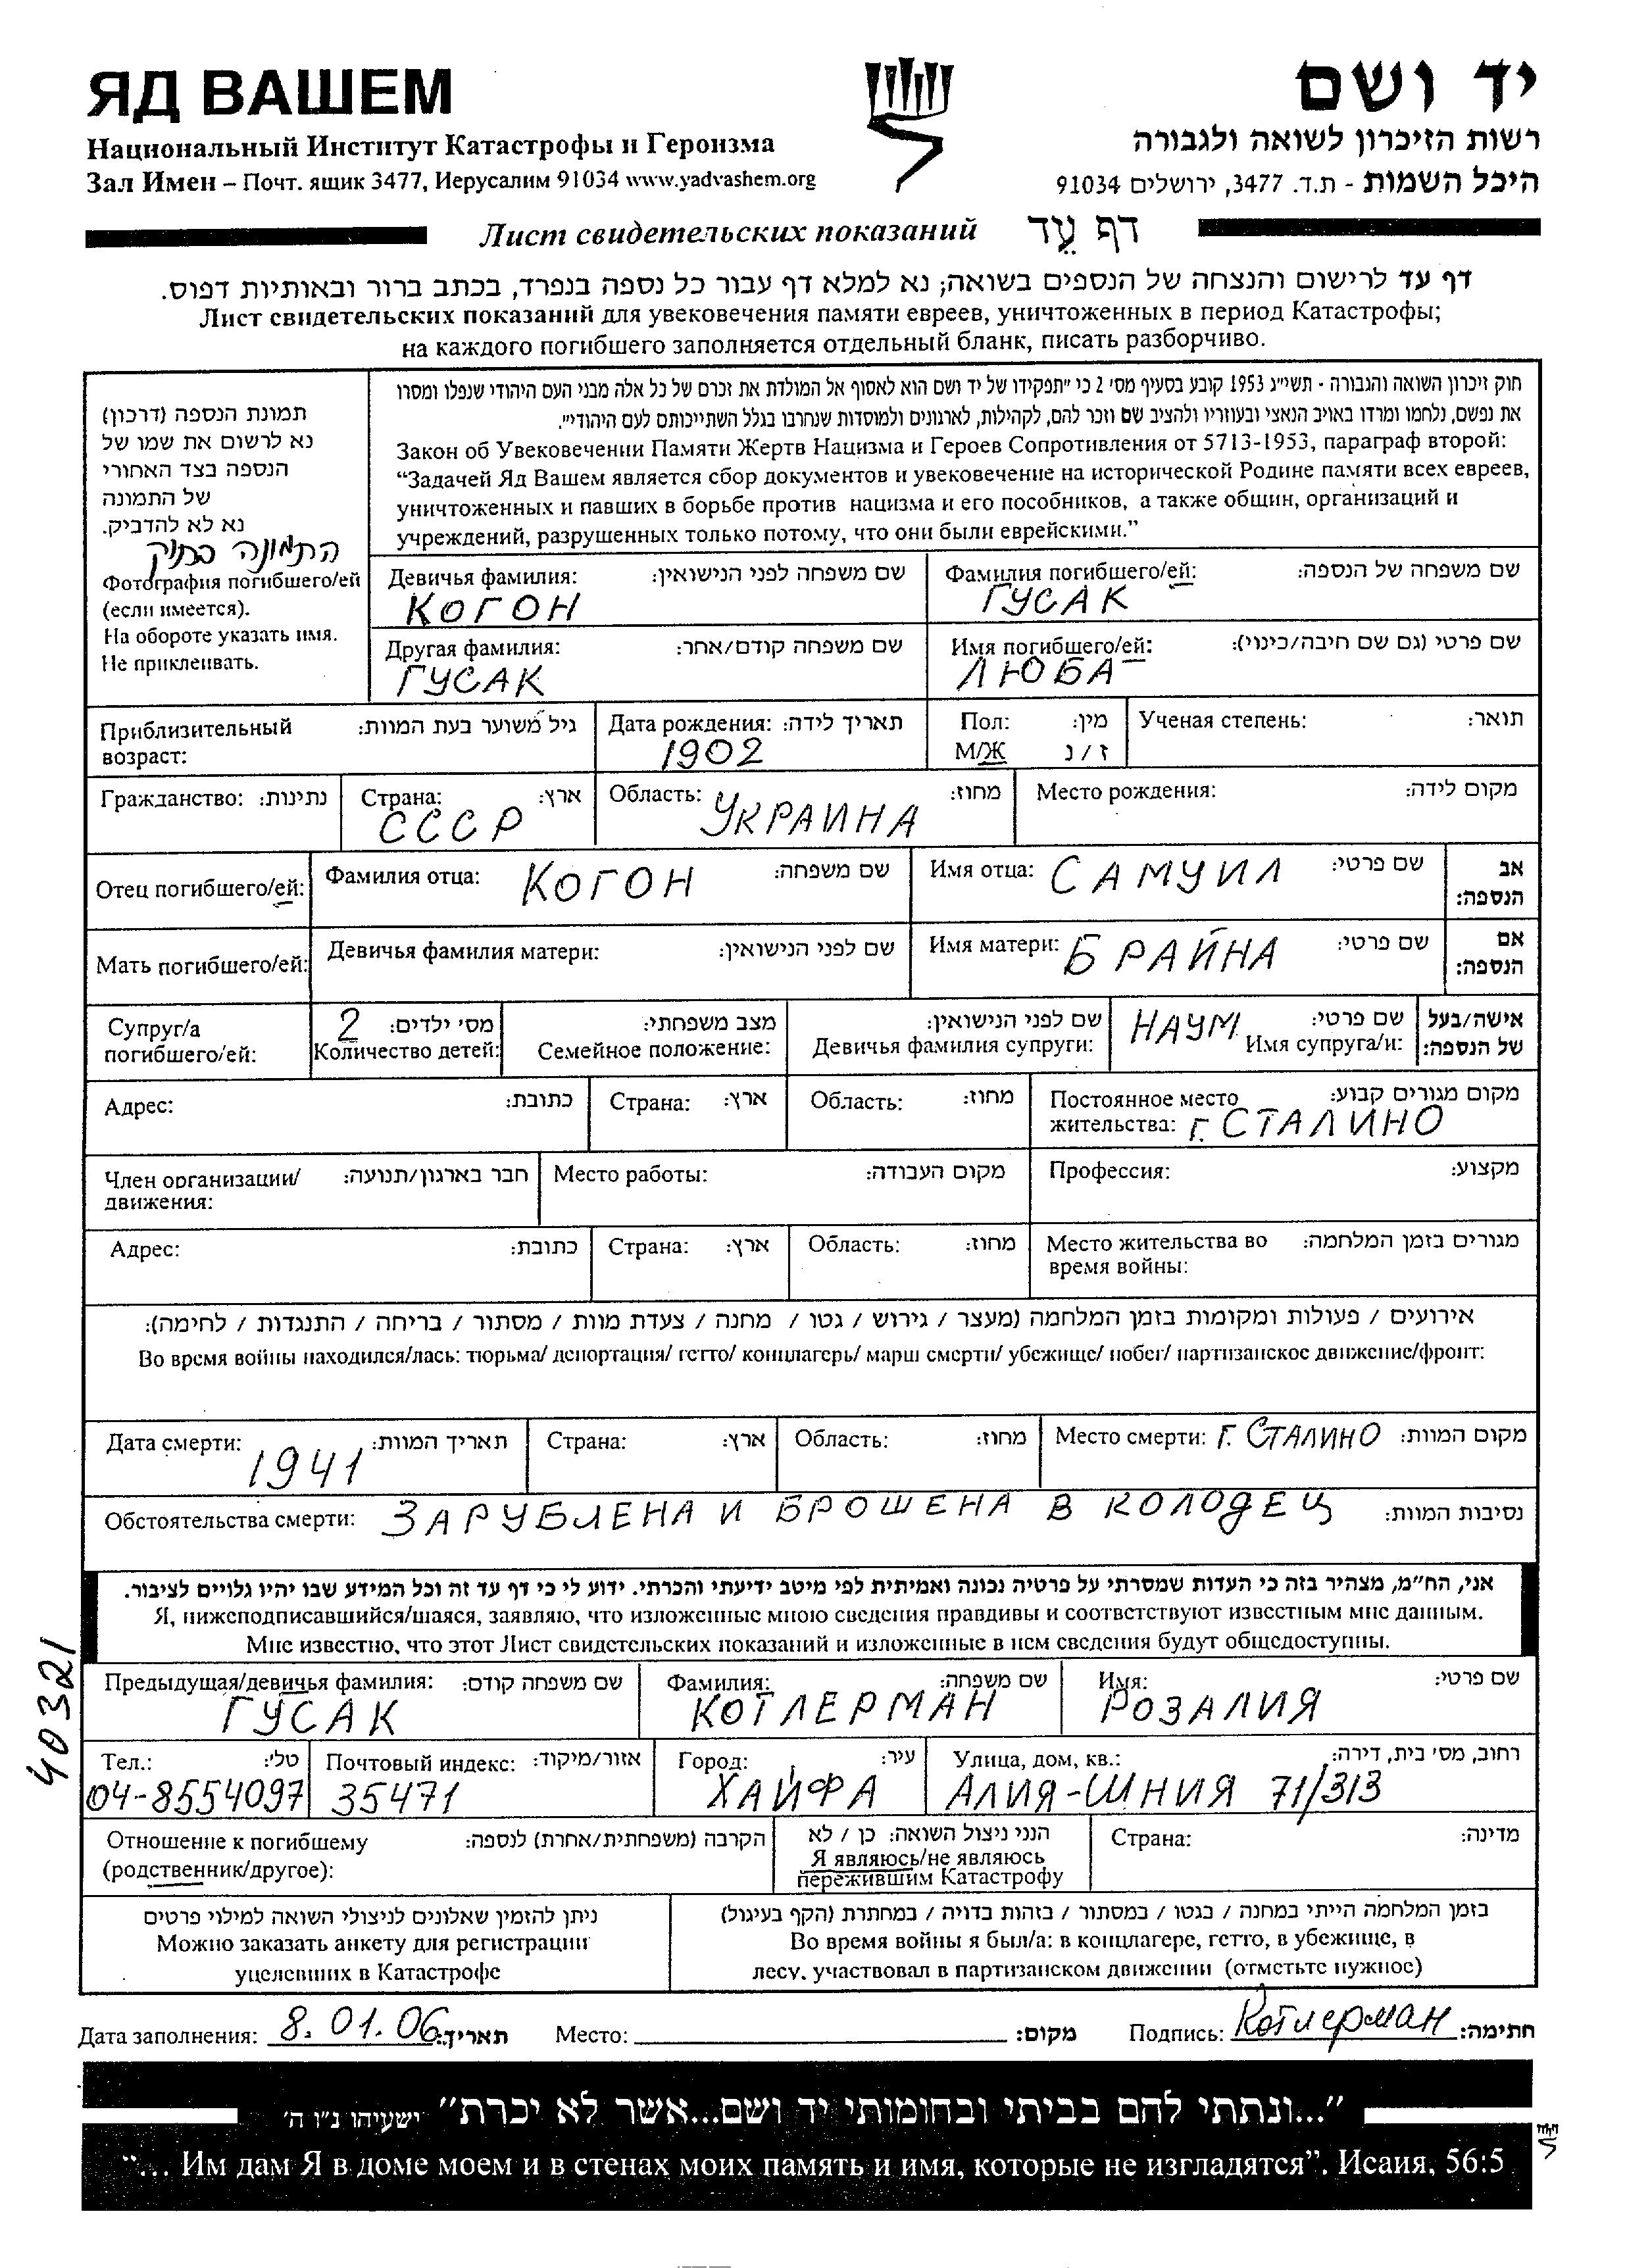 ЯД ВАШЕМ
Национальный Институт Катастрофы и Героизма
Зал Имен – Почт. ящик 3477, Иерусалим 91034 www.yadvashem.org
יד ושם
רשות הזיכרון לשואה ולגבורה
היכל השמות - ת.ד. 3477, ירושלים 91034
Лист свидетельских показаний דף עֵד
דף עד לרישום והנצחה של הנספים בשואה; נא למלא דף עבור כל נספה בנפרד, בכתב ברור ובאותיות דפוס.
Лист свидетельских показаний для увековечения памяти евреев, уничтоженных в период Катастрофы;
на каждого погибшего заполняется отдельный бланк, писать разборчиво.
תמונת הנספה (דרכון)
נא לרשום את שמו של
הנספה בצד האחורי
של התמונה
נא לא להדביק.
התמונה בתיק
Фотография погибшего/ей
(если имеется).
На обороте указать имя.
Не приклеивать.
חוק זיכרון השואה והגבורה - תשי״ג 1953 קובע בסעיף מס' 2 כי ״תפקידו של יד ושם הוא לאסוף אל המולדת את זכרם של כל אלה מבני העם היהודי שנפלו ומסרו
את נפשם, נלחמו ומרדו באויב הנאצי ובעוזריו ולהציב שם וזכר להם, לקהילות, לארגונים ולמוסדות שנחרבו בגלל השתייכותם לעם היהודי״.
Закон об Увековечении Памяти Жертв Нацизма и Героев Сопротивления от 5713-1953, параграф второй:
“Задачей Яд Вашем является сбор документов и увековечение на исторической Родине памяти всех евреев,
уничтоженных и павших в борьбе против нацизма и его пособников, а также общин, организаций и
учреждений, разрушенных только потому, что они были еврейскими.”
Девичья фамилия: שם משפחה לפני הנישואין:
КОГОН
Фамилия погибшего/ей: שם משפחה של הנספה:
ГУСАК
Другая фамилия: שם משפחה קודם/אחר:
ГУСАК
Имя погибшего/ей: שם פרטי (גם שם חיבה/כינוי):
ЛЮБА
Приблизительный גיל משוער בעת המוות:
возраст:
Дата рождения: תאריך לידה:
1902
Пол: מין:
М/Ж ז / נ
Ученая степень: תואר:
Гражданство: נתינות:
Страна: ארץ:
СССР
Область: מחוז:
УКРАИНА
Место рождения: מקום לידה:
Отец погибшего/ей:
Фамилия отца: КОГОН שם משפחה:
Имя отца: САМУИЛ שם פרטי:
אב
הנספה:
Мать погибшего/ей:
Девичья фамилия матери: שם לפני הנישואין:
Имя матери: БРАЙНА שם פרטי:
אם
הנספה:
Супруг/а
погибшего/ей:
2 מס' ילדים:
Количество детей:
מצב משפחתי:
Семейное положение:
שם לפני הנישואין:
Девичья фамилия супруги:
НАУМ שם פרטי:
Имя супруга/и:
אישה/בעל
של הנספה:
Адрес: כתובת:
Страна: ארץ:
Область: מחוז:
Постоянное место מקום מגורים קבוע:
жительства: г. СТАЛИНО
Член организации/ חבר בארגון/תנועה:
движения:
Место работы: מקום העבודה:
Профессия: מקצוע:
Адрес: כתובת:
Страна: ארץ:
Область: מחוז:
Место жительства во מגורים בזמן המלחמה:
время войны:
אירועים / פעולות ומקומות בזמן המלחמה (מעצר / גירוש / גטו / מחנה / צעדת מוות / מסתור / בריחה / התנגדות / לחימה):
Во время войны находился/лась: тюрьма/ депортация/ гетто/ концлагерь/ марш смерти/ убежище/ побег/ партизанское движение/фронт:
Дата смерти: תאריך המוות:
1941
Страна: ארץ:
Область: מחוז:
Место смерти: Г. СТАЛИНО מקום המוות:
Обстоятельства смерти: ЗАРУБЛЕНА И БРОШЕНА В КОЛОДЕЦ נסיבות המוות:
אני, הח״מ, מצהיר בזה כי העדות שמסרתי על פרטיה נכונה ואמיתית לפי מיטב ידיעתי והכרתי. ידוע לי כי דף עד זה וכל המידע שבו יהיו גלויים לציבור.
Я, нижеподписавшийся/шаяся, заявляю, что изложенные мною сведения правдивы и соответствуют известным мне данным.
Мне известно, что этот Лист свидетельских показаний и изложенные в нем сведения будут общедоступны.
40321
Предыдущая/девичья фамилия: שם משפחה קודם:
ГУСАК
Фамилия: שם משפחה:
КОТЛЕРМАН
Имя: שם פרטי:
РОЗАЛИЯ
Тел.: טל':
04-8554097
Почтовый индекс: אזור/מיקוד:
35471
Город: עיר:
ХАЙФА
Улица, дом, кв.: רחוב, מס' בית, דירה:
АЛИЯ-ШНИЯ 71/313
Отношение к погибшему הקרבה (משפחתית/אחרת) לנספה:
(родственник/другое):
הנני ניצול השואה: כן / לא
Я являюсь/не являюсь
пережившим Катастрофу
Страна: מדינה:
ניתן להזמין שאלונים לניצולי השואה למילוי פרטים
Можно заказать анкету для регистрации
уцелевших в Катастрофе
בזמן המלחמה הייתי במחנה / בגטו / במסתור / בזהות בדויה / במחתרת (הקף בעיגול)
Во время войны я был/а: в концлагере, гетто, в убежище, в
лесу, участвовал в партизанском движении (отметьте нужное)
Дата заполнения: 8.01.06 תאריך: Место: מקום: Подпись: Котлерман חתימה:
״...ונתתי להם בביתי ובחומותי יד ושם...אשר לא יכרת״ ישעיהו נ״ו ה'
“... Им дам Я в доме моем и в стенах моих память и имя, которые не изгладятся”. Исаия, 56:5